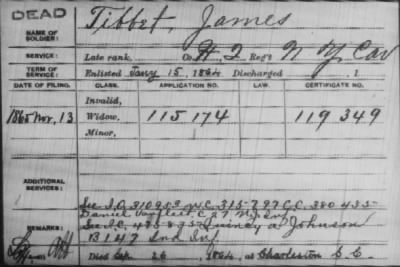 DEAD
NAME OF SOLDIER: Tibbet, James
SERVICE: Late rank, Co. H, 2 Reg't N. Y. Cav
TERM OF SERVICE: Enlisted Jany 15, 1864 Discharged , 1
DATE OF FILING. CLASS. APPLICATION NO. LAW. CERTIFICATE NO.
Invalid,
1865 Nov. 13 Widow, 115 174 119 349
Minor,
ADDITIONAL SERVICES:
See I.O. 310953 W.C. 315-797 C.C. 380 435-
Daniel Vanfleet, C 27 N.J. Inf
REMARKS: See I.C. 485835 Quincy A Johnson
B 147 Ind Inf.
Died Sep. 26, 1864, at Charleston S.C.